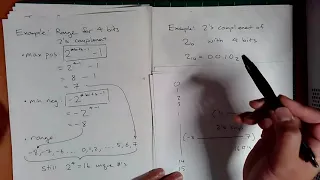 Example: Range for 4 bits
2's complement
• max pos: 2^(#bits-1) - 1
= 2^(4-1) - 1
= 8 - 1
= 7
• min neg: -2^(#bits-1)
= -2^(4-1)
= -8
• range
-8, -7, -6, ... 0, 1, 2, ... 5, 6, 7
Still 2^4 = 16 unique
Example: 2's complement of
2₁₀ with 4 bits
2₁₀ = 0010₂
0
1
2
3
(-8
7)
14
15